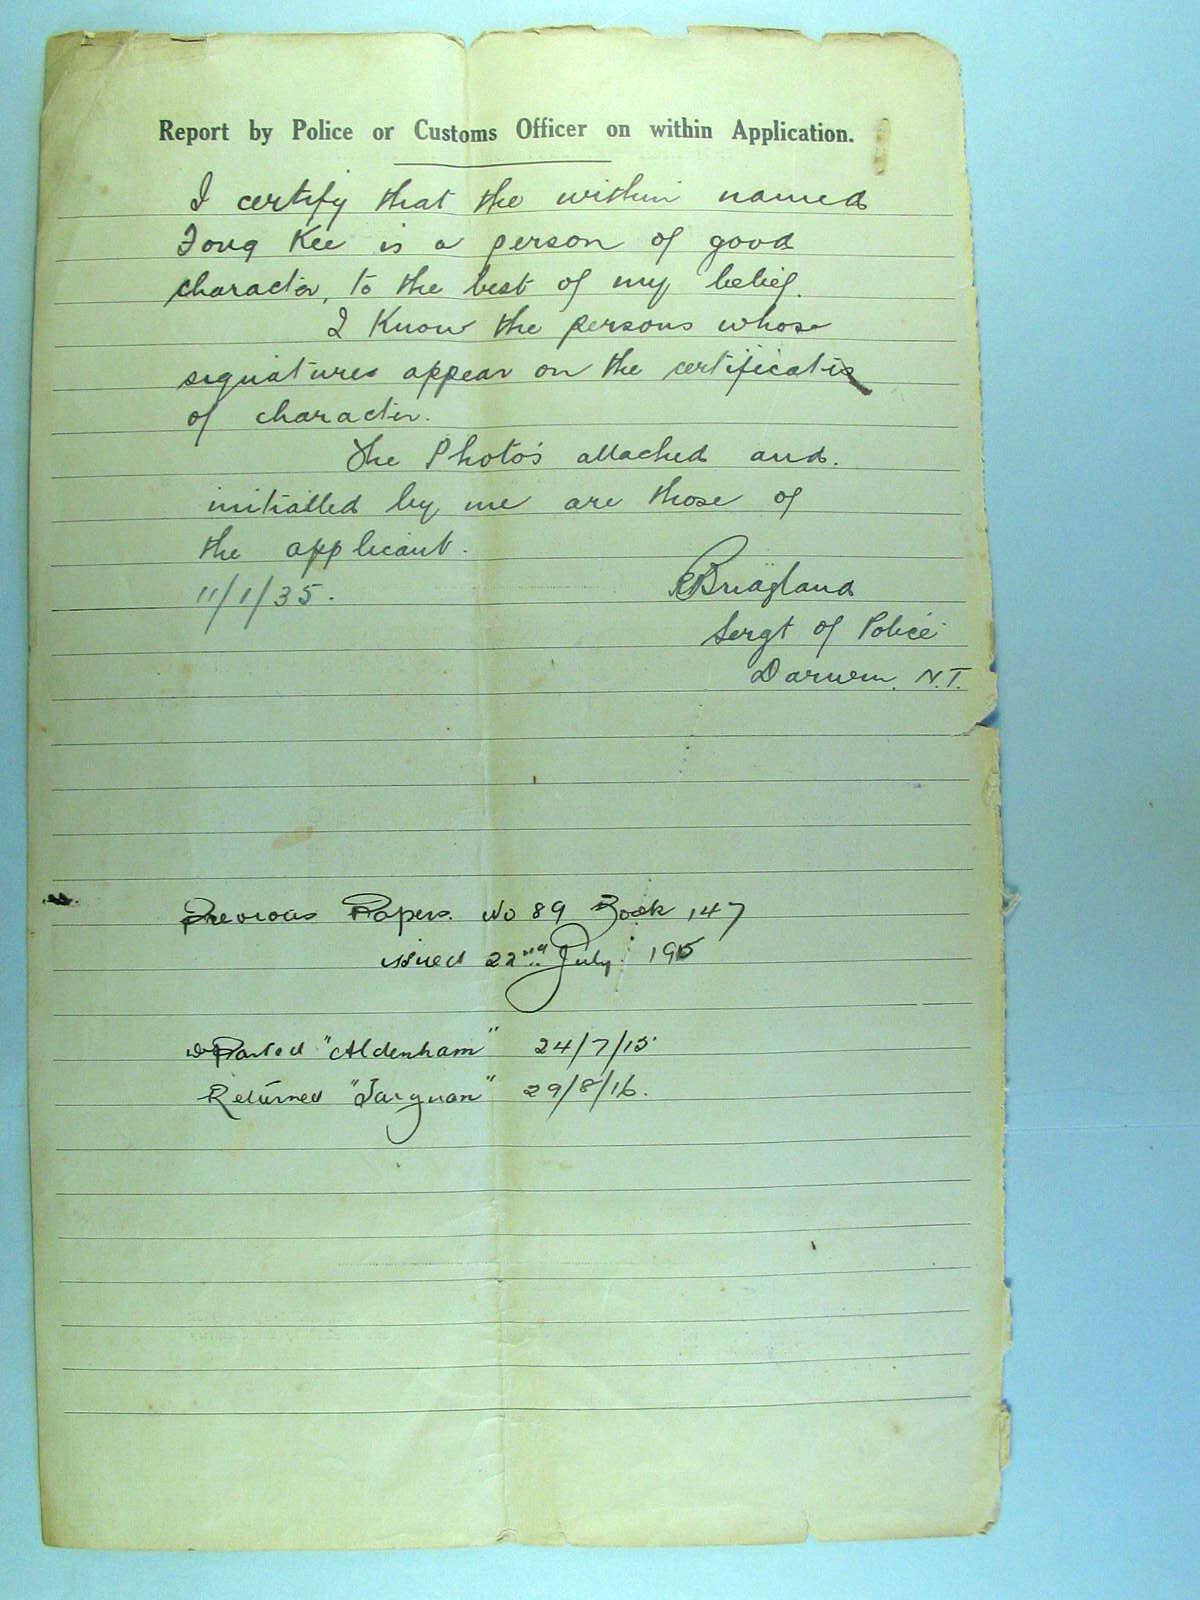 Report by Police or Customs Officer on within Application.
I certify that the within named
Fong Kee is a person of good
character, to the best of my belief.
I Know the persons whose
signatures appear on the certificates
of character.
The Photo's attached and.
initialled by me are those of
the applicant.
11/1/35.
Bridgland
Sergt of Police
Darwin. N.T.
Previous Papers. No 89 Book 147
issued 22nd July 1915
Departed "Aldenham" 24/7/15
Returned "Taiyuan" 29/8/16.